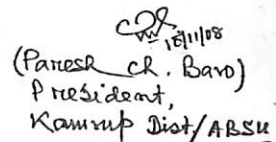 15/11/08
(Paresh Ch. Baro)
President,
Kamrup Dist/ABSU